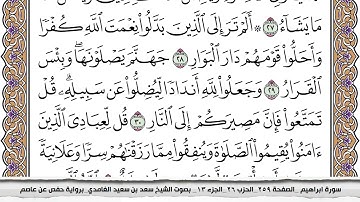 مَا يَشَآءُ ٢٧ ۞ أَلَمْ تَرَ إِلَى ٱلَّذِينَ بَدَّلُوا۟ نِعْمَتَ ٱللَّهِ كُفْرًا
وَأَحَلُّوا۟ قَوْمَهُمْ دَارَ ٱلْبَوَارِ ٢٨ جَهَنَّمَ يَصْلَوْنَهَا ۖ وَبِئْسَ
ٱلْقَرَارُ ٢٩ وَجَعَلُوا۟ لِلَّهِ أَندَادًا لِّيُضِلُّوا۟ عَن سَبِيلِهِۦ ۗ قُلْ
تَمَتَّعُوا۟ فَإِنَّ مَصِيرَكُمْ إِلَى ٱلنَّارِ ٣٠ قُل لِّعِبَادِىَ ٱلَّذِينَ
ءَامَنُوا۟ يُقِيمُوا۟ ٱلصَّلَوٰةَ وَيُنفِقُوا۟ مِمَّا رَزَقْنَٰهُمْ سِرًّا وَعَلَانِيَةً
سورة ابراهيم _الصفحة ٢٥٩_ الحزب ٢٦_ الجزء ١٣_ بصوت الشيخ سعد بن سعيد الغامدي_ برواية حفص عن عاصم